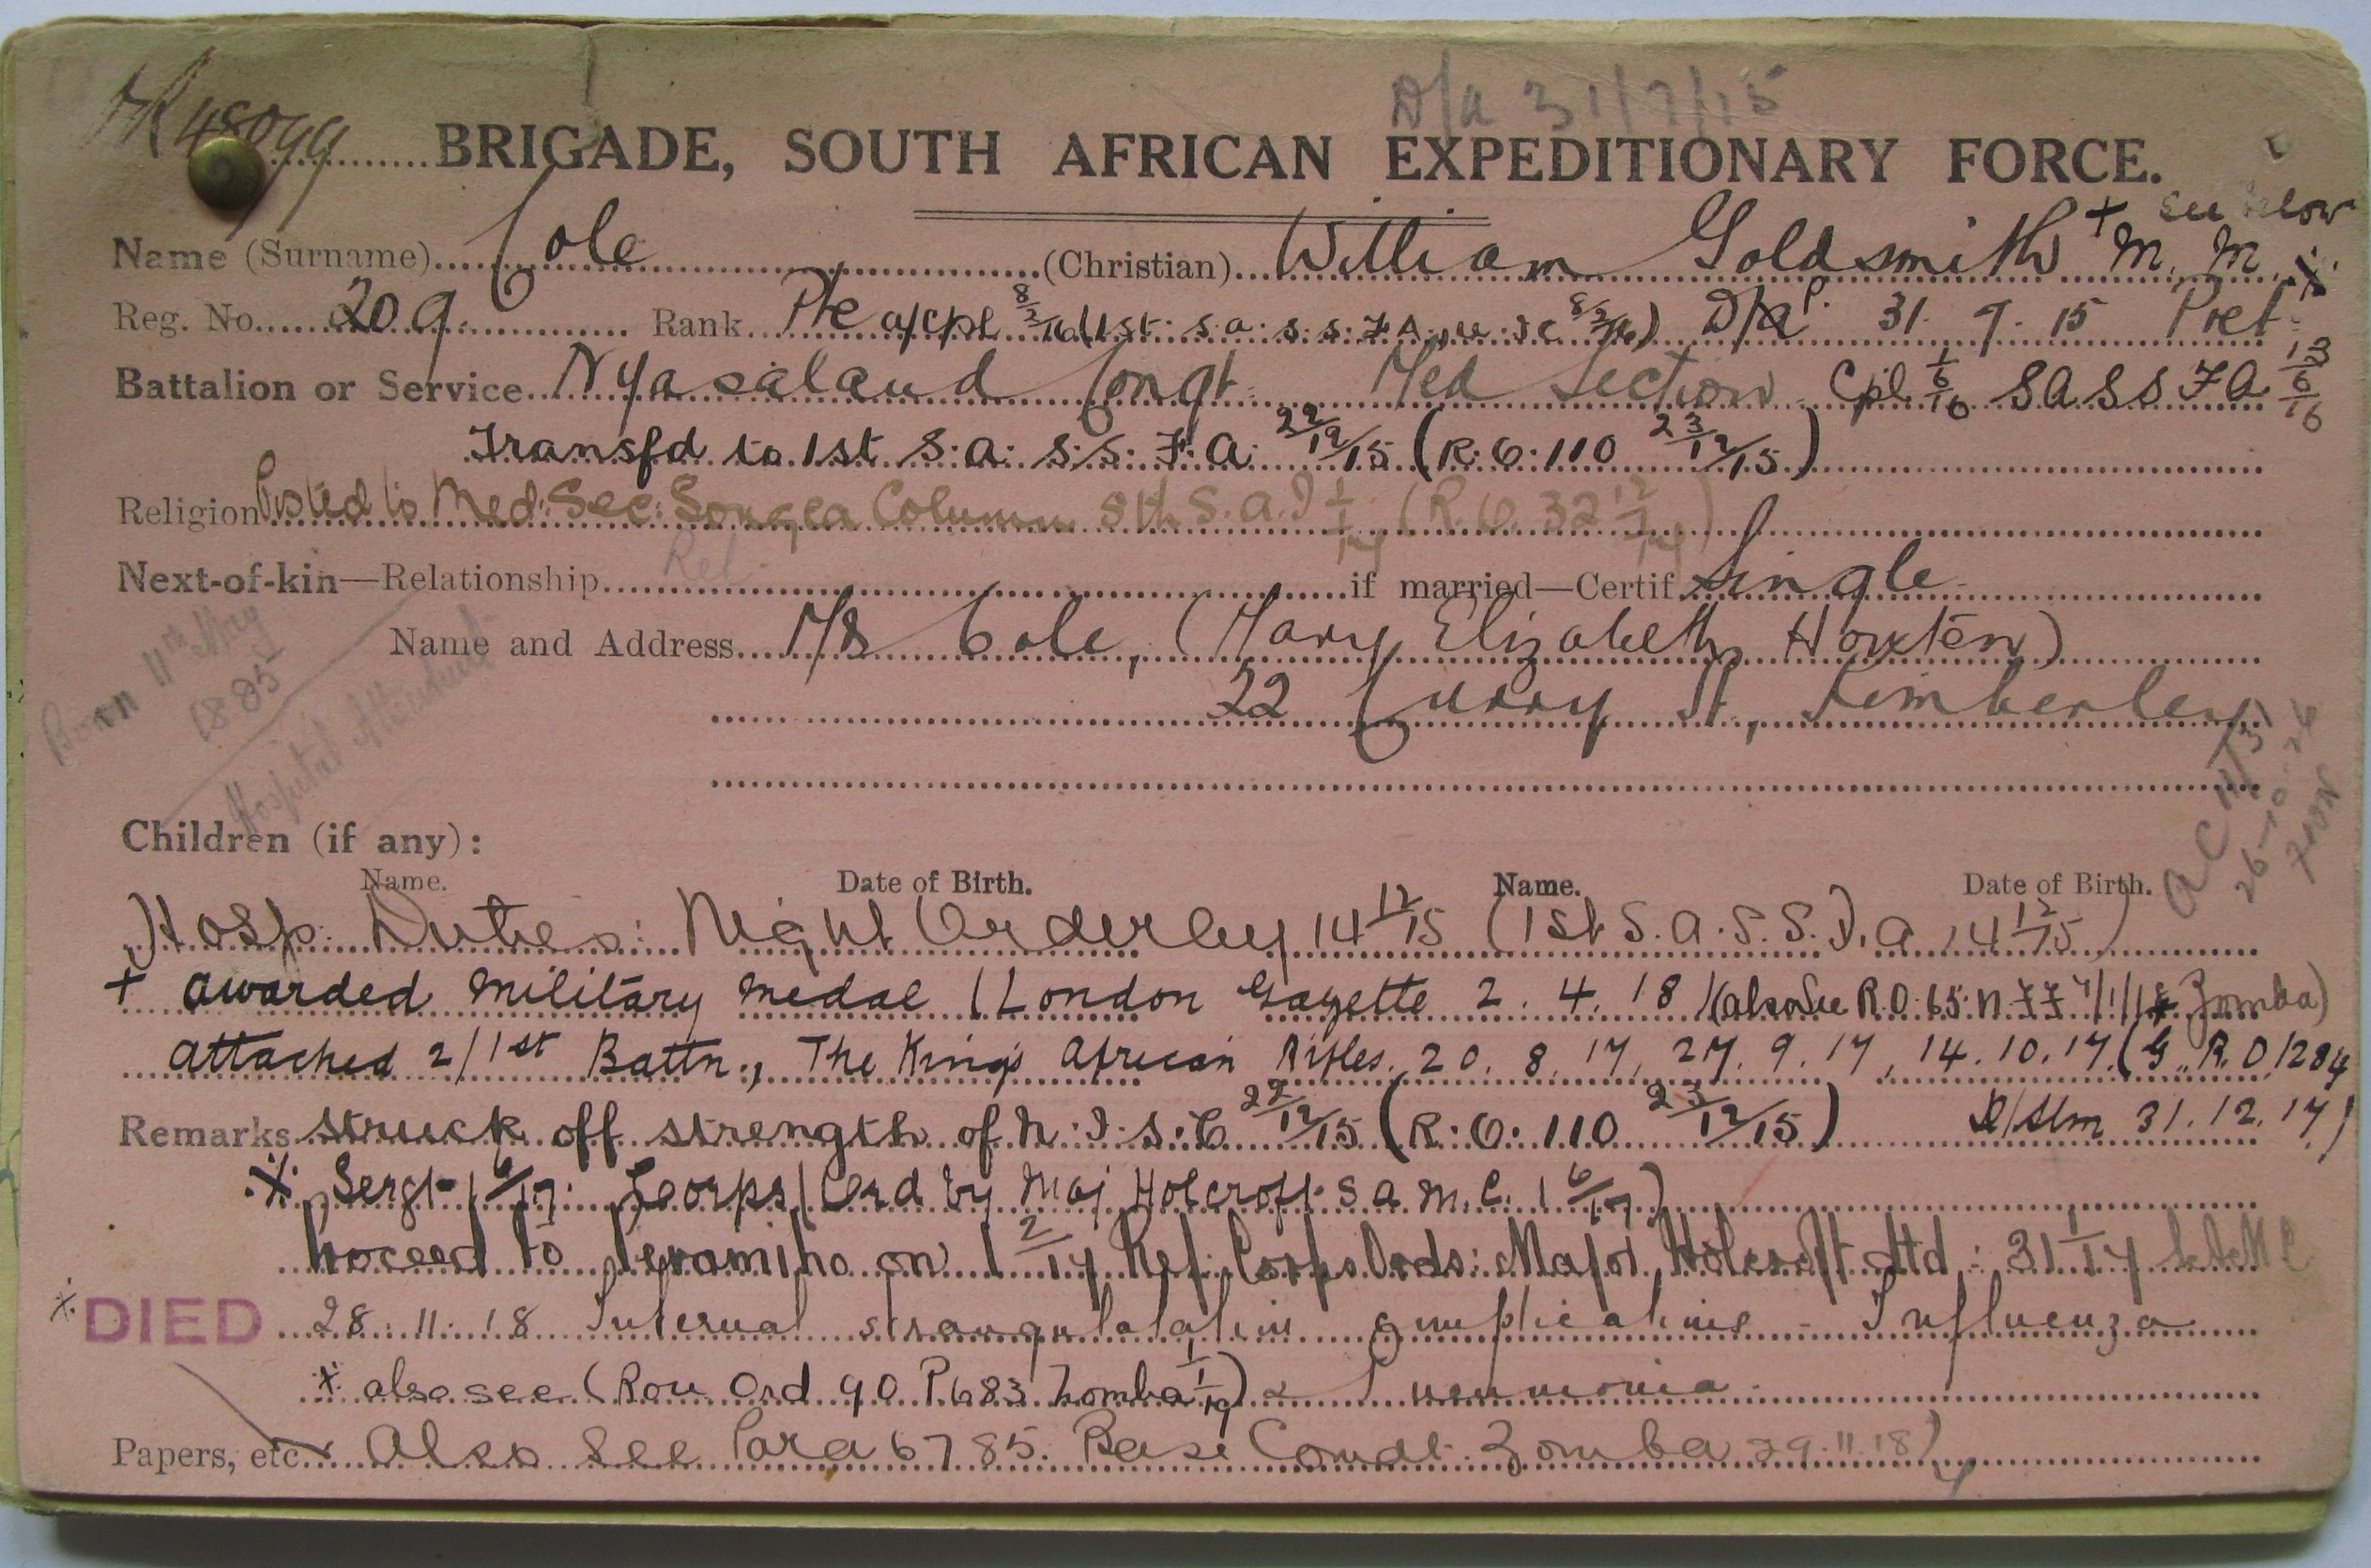 D/a 31/7/15
BRIGADE, SOUTH AFRICAN EXPEDITIONARY FORCE.
+ see below
Name (Surname) Cole (Christian) William Goldsmith + M. M.
Reg. No. 209. Rank Pte a/cpl 8/2/16 (1st. S.a.S.S.F.A. 8/2/16) D/a 31. 7. 15 Pret.
Battalion or Service Nyasaland Congt. Med Section Cpl 1/6/16 SASSFA 13/6/16
Transfd to 1st S.a. S.S. F.a. 22/12/15 (R.O. 110 23/12/15)
Religion Posted to Med: Sec: Songea Column 8th S.A.I 1/1/17 (R.O. 32 12/1/17)
Rel.
Next-of-kin—Relationship if married—Certif. Single
Name and Address Mrs Cole, (Mary Elizabeth Howten)
22 Curry St, Kimberley
Born 11th May
1885
Hospital Attendant
26-10-26
Children (if any):
Name. Date of Birth. Name. Date of Birth.
Hosp. Duties: Night Orderley 14 12/15 (1st S.a.S.S.F.a 14 12/15)
+ awarded military medal (London Gazette 2. 4. 18) (also See R.O. 65 Zomba)
attached 2/1st Battn., The King's African Rifles. 20. 8. 17, 27. 9. 17, 14. 10. 17. (G.R.O 1284
D/Slm 31. 12. 17)
Remarks struck off strength of N.I.S.C 22/12/15 (R.O. 110 23/12/15)
Sergt 1 6/17. (Corps Ord by Maj Holcroft SAMC. 1 6/17)
Proceed to Peramiho on 1 2/17 Ref: Corps Ords: Major Holcroft dtd: 31 1/17 SAMC
DIED 28. 11. 18 Internal strangulation complications - Influenza
also see (Rou Ord 90 P683 Zomba 1/1/19) & Pneumonia
Papers, etc. Also See Para 6785. Base Comdt. Zomba 29.11.18)